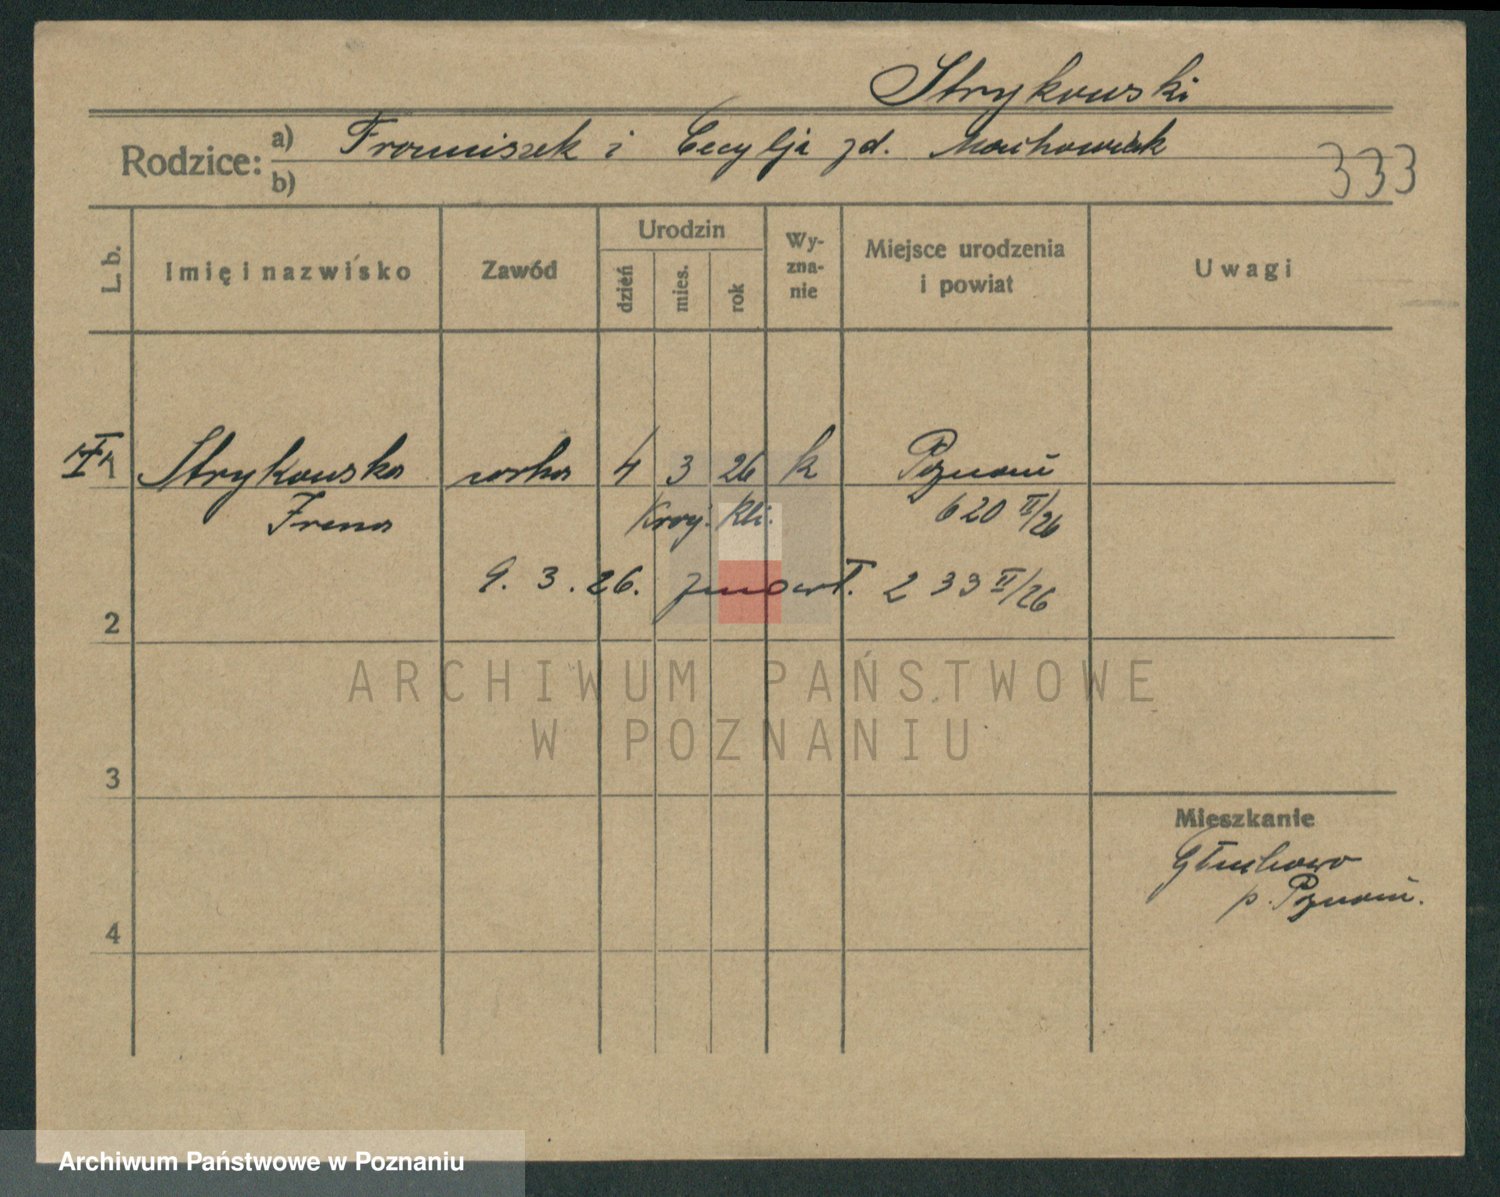 Strykowski
Rodzice: a) Franciszek i Cecylja zd. Machowiak
b)
333
L. b. Imię i nazwisko Zawód Urodzin dzień mies. rok Wyzna-nie Miejsce urodzenia i powiat Uwagi
Strykowska córka 4 3 26 k Poznań
Irena Kraj. Kli. 620 II/26
9. 3. 26. zmarł. 233 II/26
2
ARCHIWUM PAŃSTWOWE
W POZNANIU
3
Mieszkanie
Głuchowo
p. Poznań.
4
Archiwum Państwowe w Poznaniu